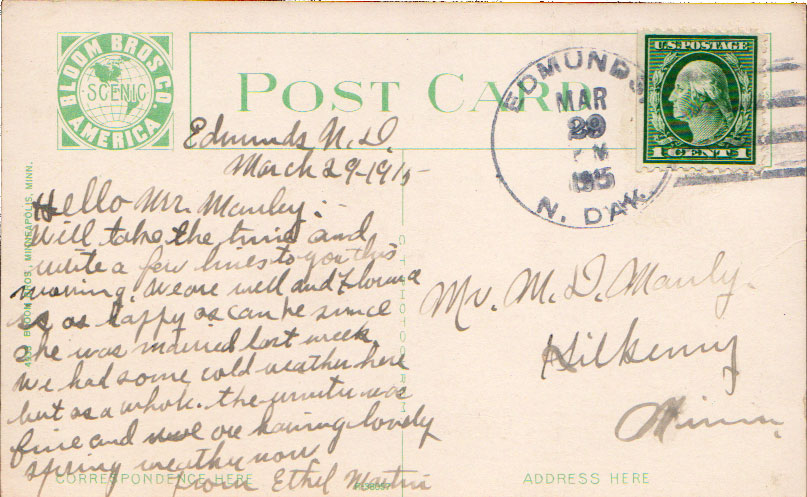 BLOOM BROS. CO.
SCENIC
AMERICA
POST CARD
EDMUNDS,
MAR
29
PM
1915
N. DAK.
U.S. POSTAGE
1 CENT 1
Edmunds N.D.
March 29-1915
Hello Mr. Manley:-
Will take the time and
write a few lines to you this
morning. We are well and
is as happy as can be since
she was married last week.
We had some cold weather here
but as a whole. the winter was
fine and we are having lovely
spring weather now
from Ethel Martin
Mr. M. D. Manly.
Kilkenny
Minn.
BLOOM BROS., MINNEAPOLIS, MINN.
CORRESPONDENCE HERE
ADDRESS HERE